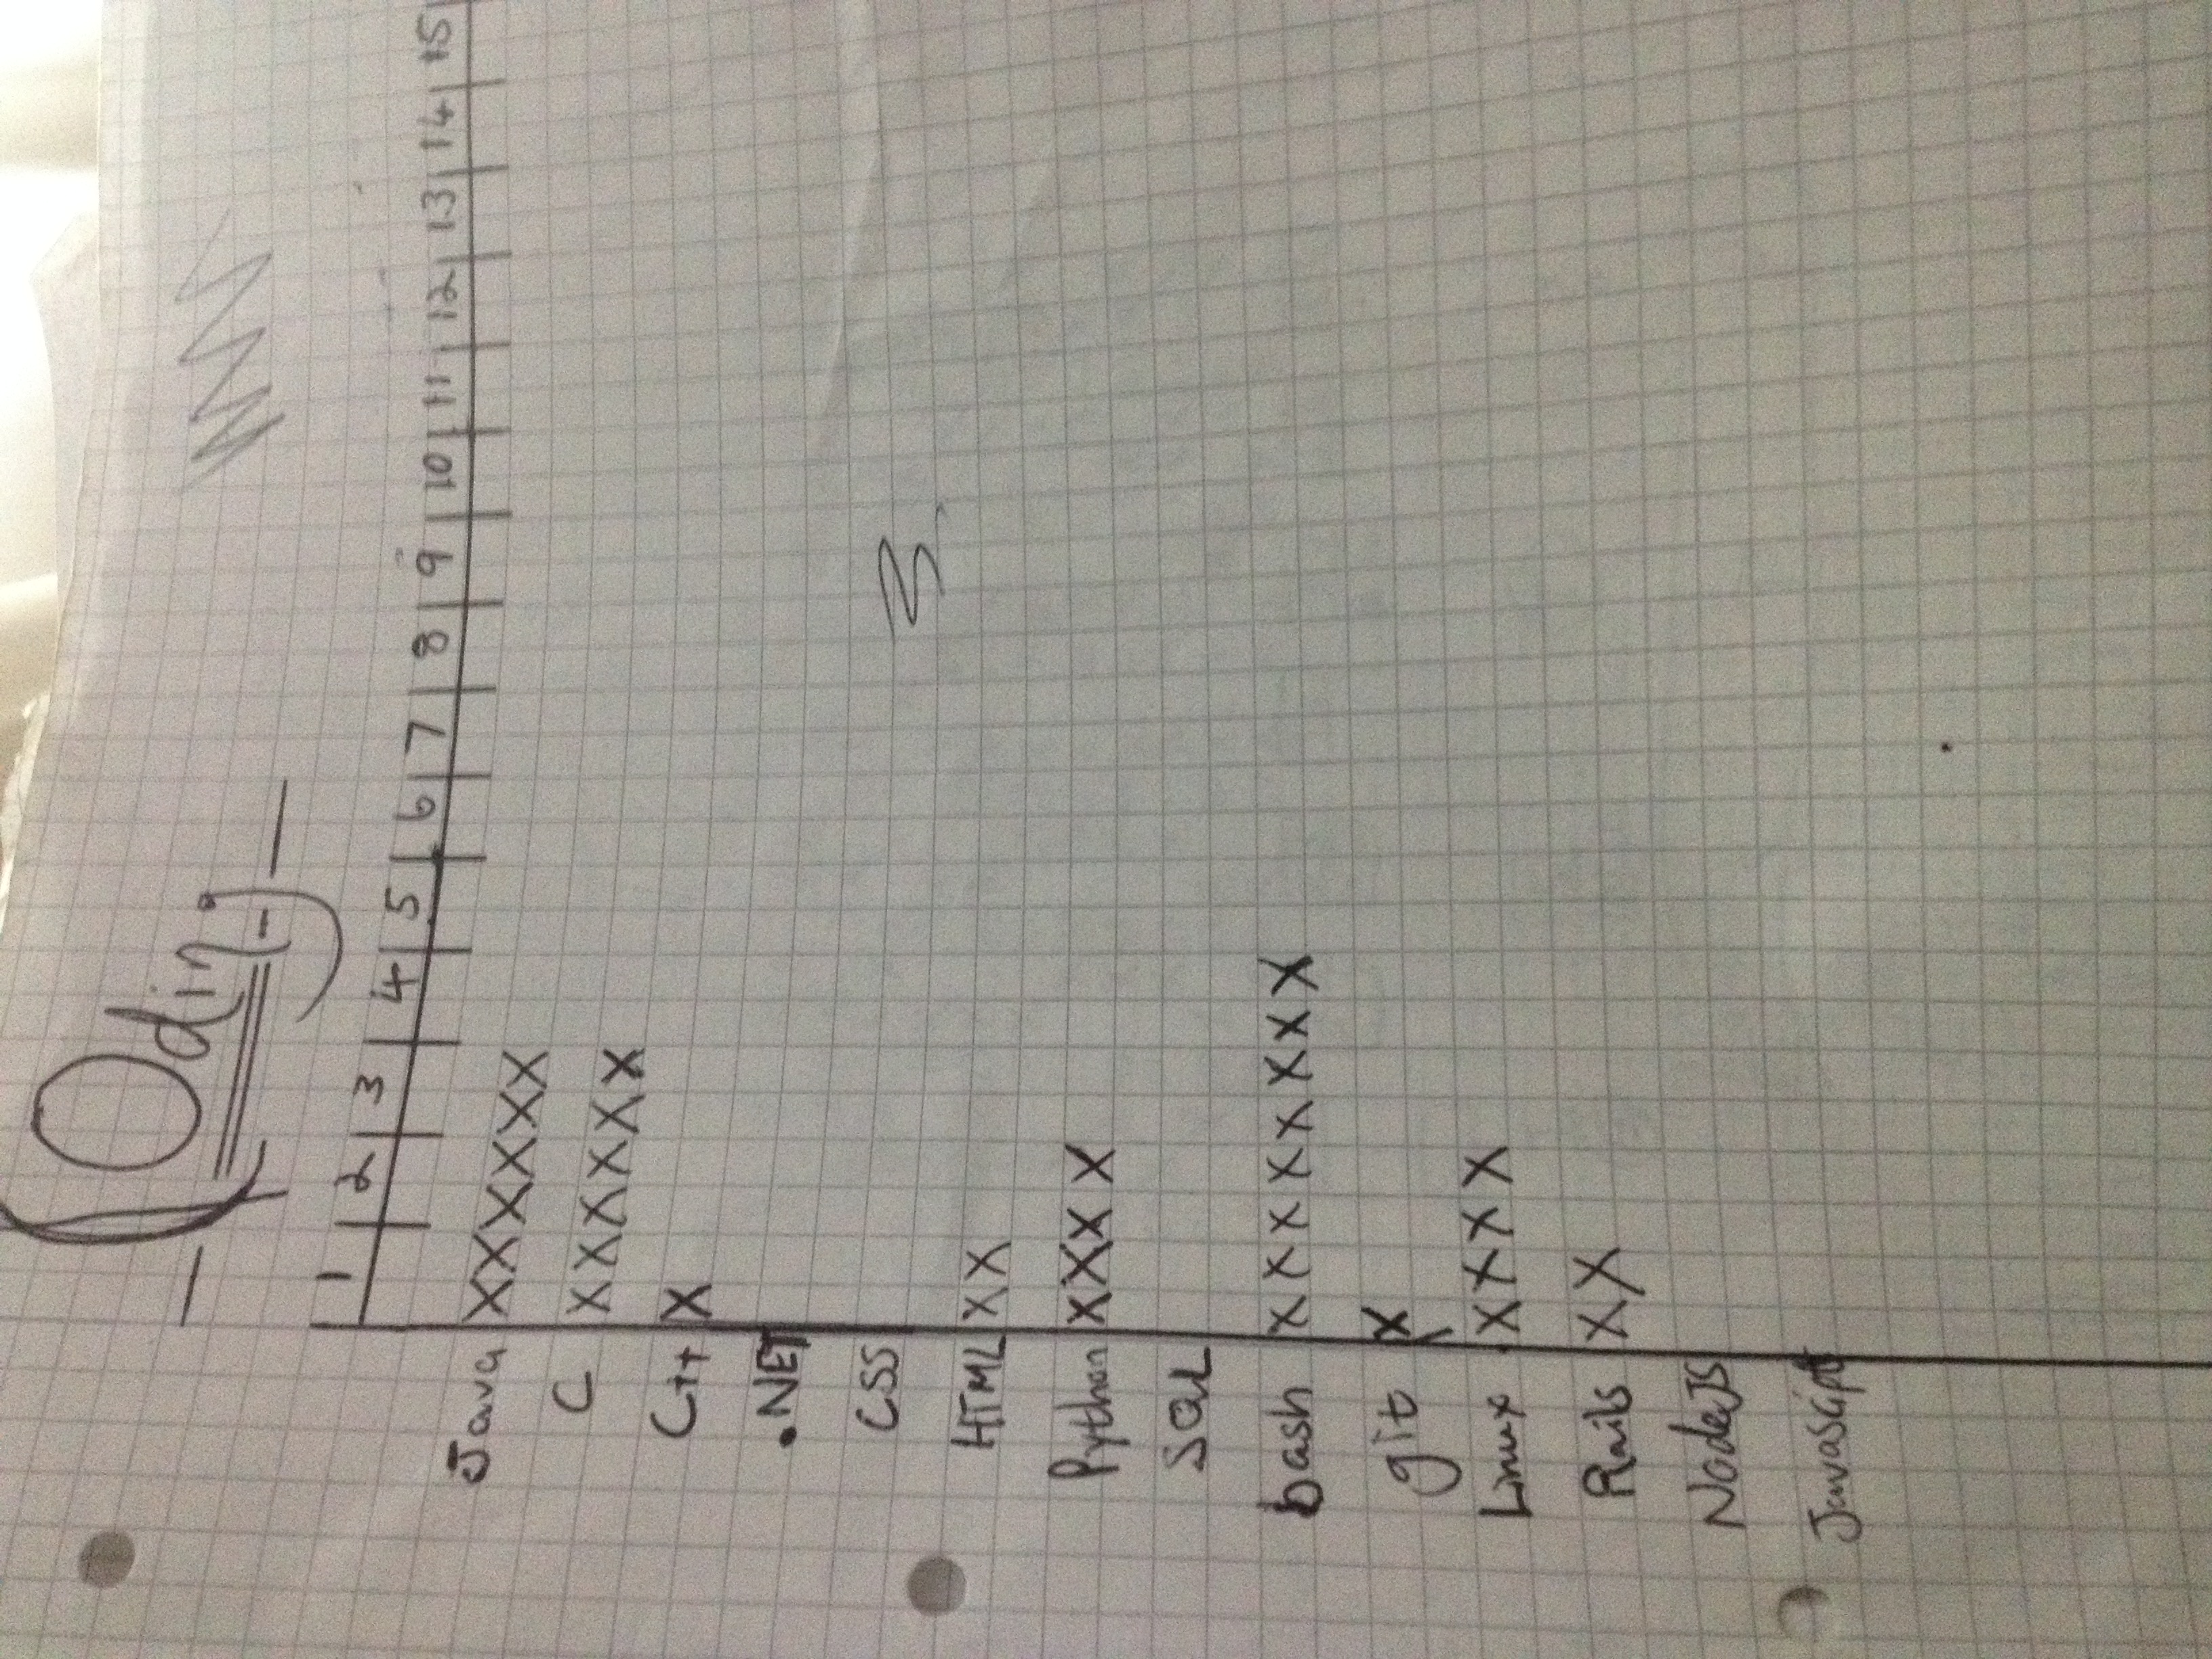 Coding
1 2 3 4 5 6 7 8 9 10 11 12 13 14 15
Java XXXXXX
C XXXXXX
C++ X
.NET
CSS
HTML XX
Python XXXX
SQL
bash XXXXXXXX
git X
Linux XXXX
Rails XX
NodeJS
Javascipt